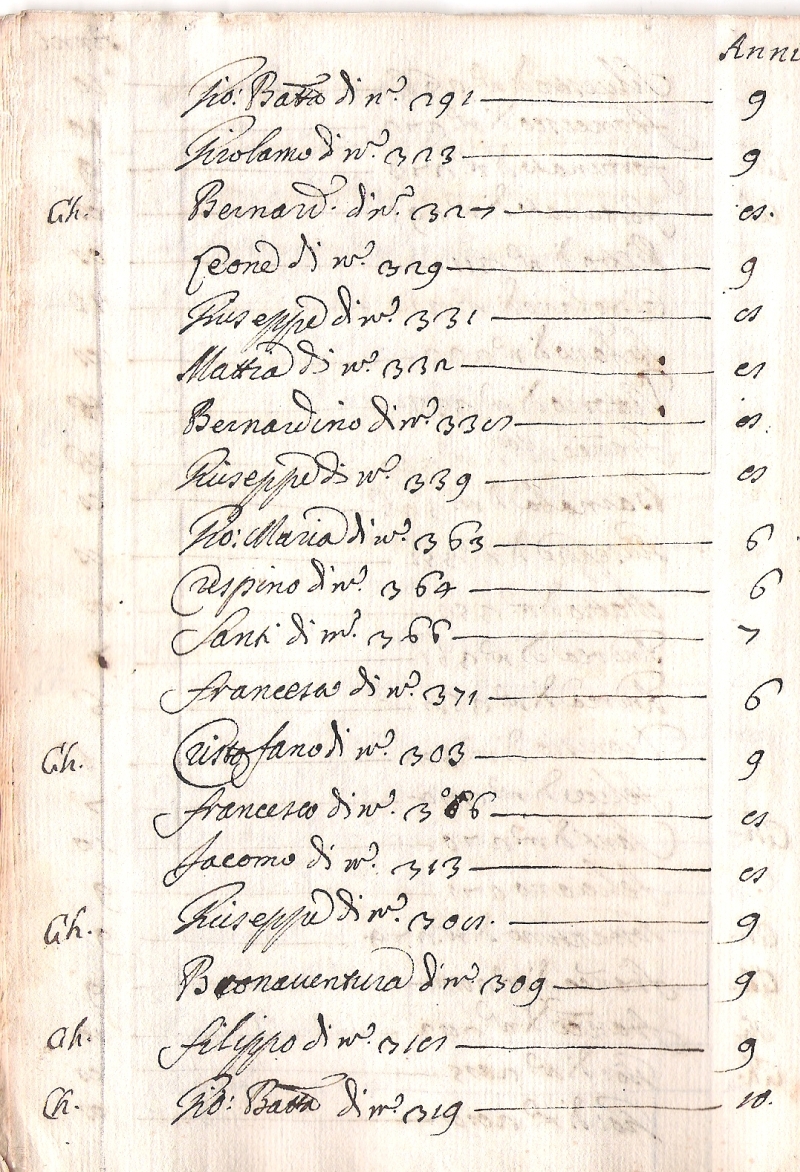 Anni
Gio: Batta di n.° 291 9
Girolamo di n.° 323 9
Ch. Bernard.° di n.° 327 8.
Leone di n.° 329 9
Giuseppe di n.° 331 8
Mattia di n.° 332 8
Bernardino di n.° 338 8.
Giuseppe di n.° 339 8
Gio: Maria di n.° 363 6
Crespino di n.° 364 6
Santi di n.° 366 7
Francesco di n.° 371 6
Ch. Cristofano di n.° 303 9
Francesco di n.° 8
Jacomo di n.° 313 8
Ch. Giuseppe di n.° 308. 9
Buonaventura di n.° 309 9
Ch. Filippo di n.° 318 9
Ch. Gio: Batta di n.° 319 10.